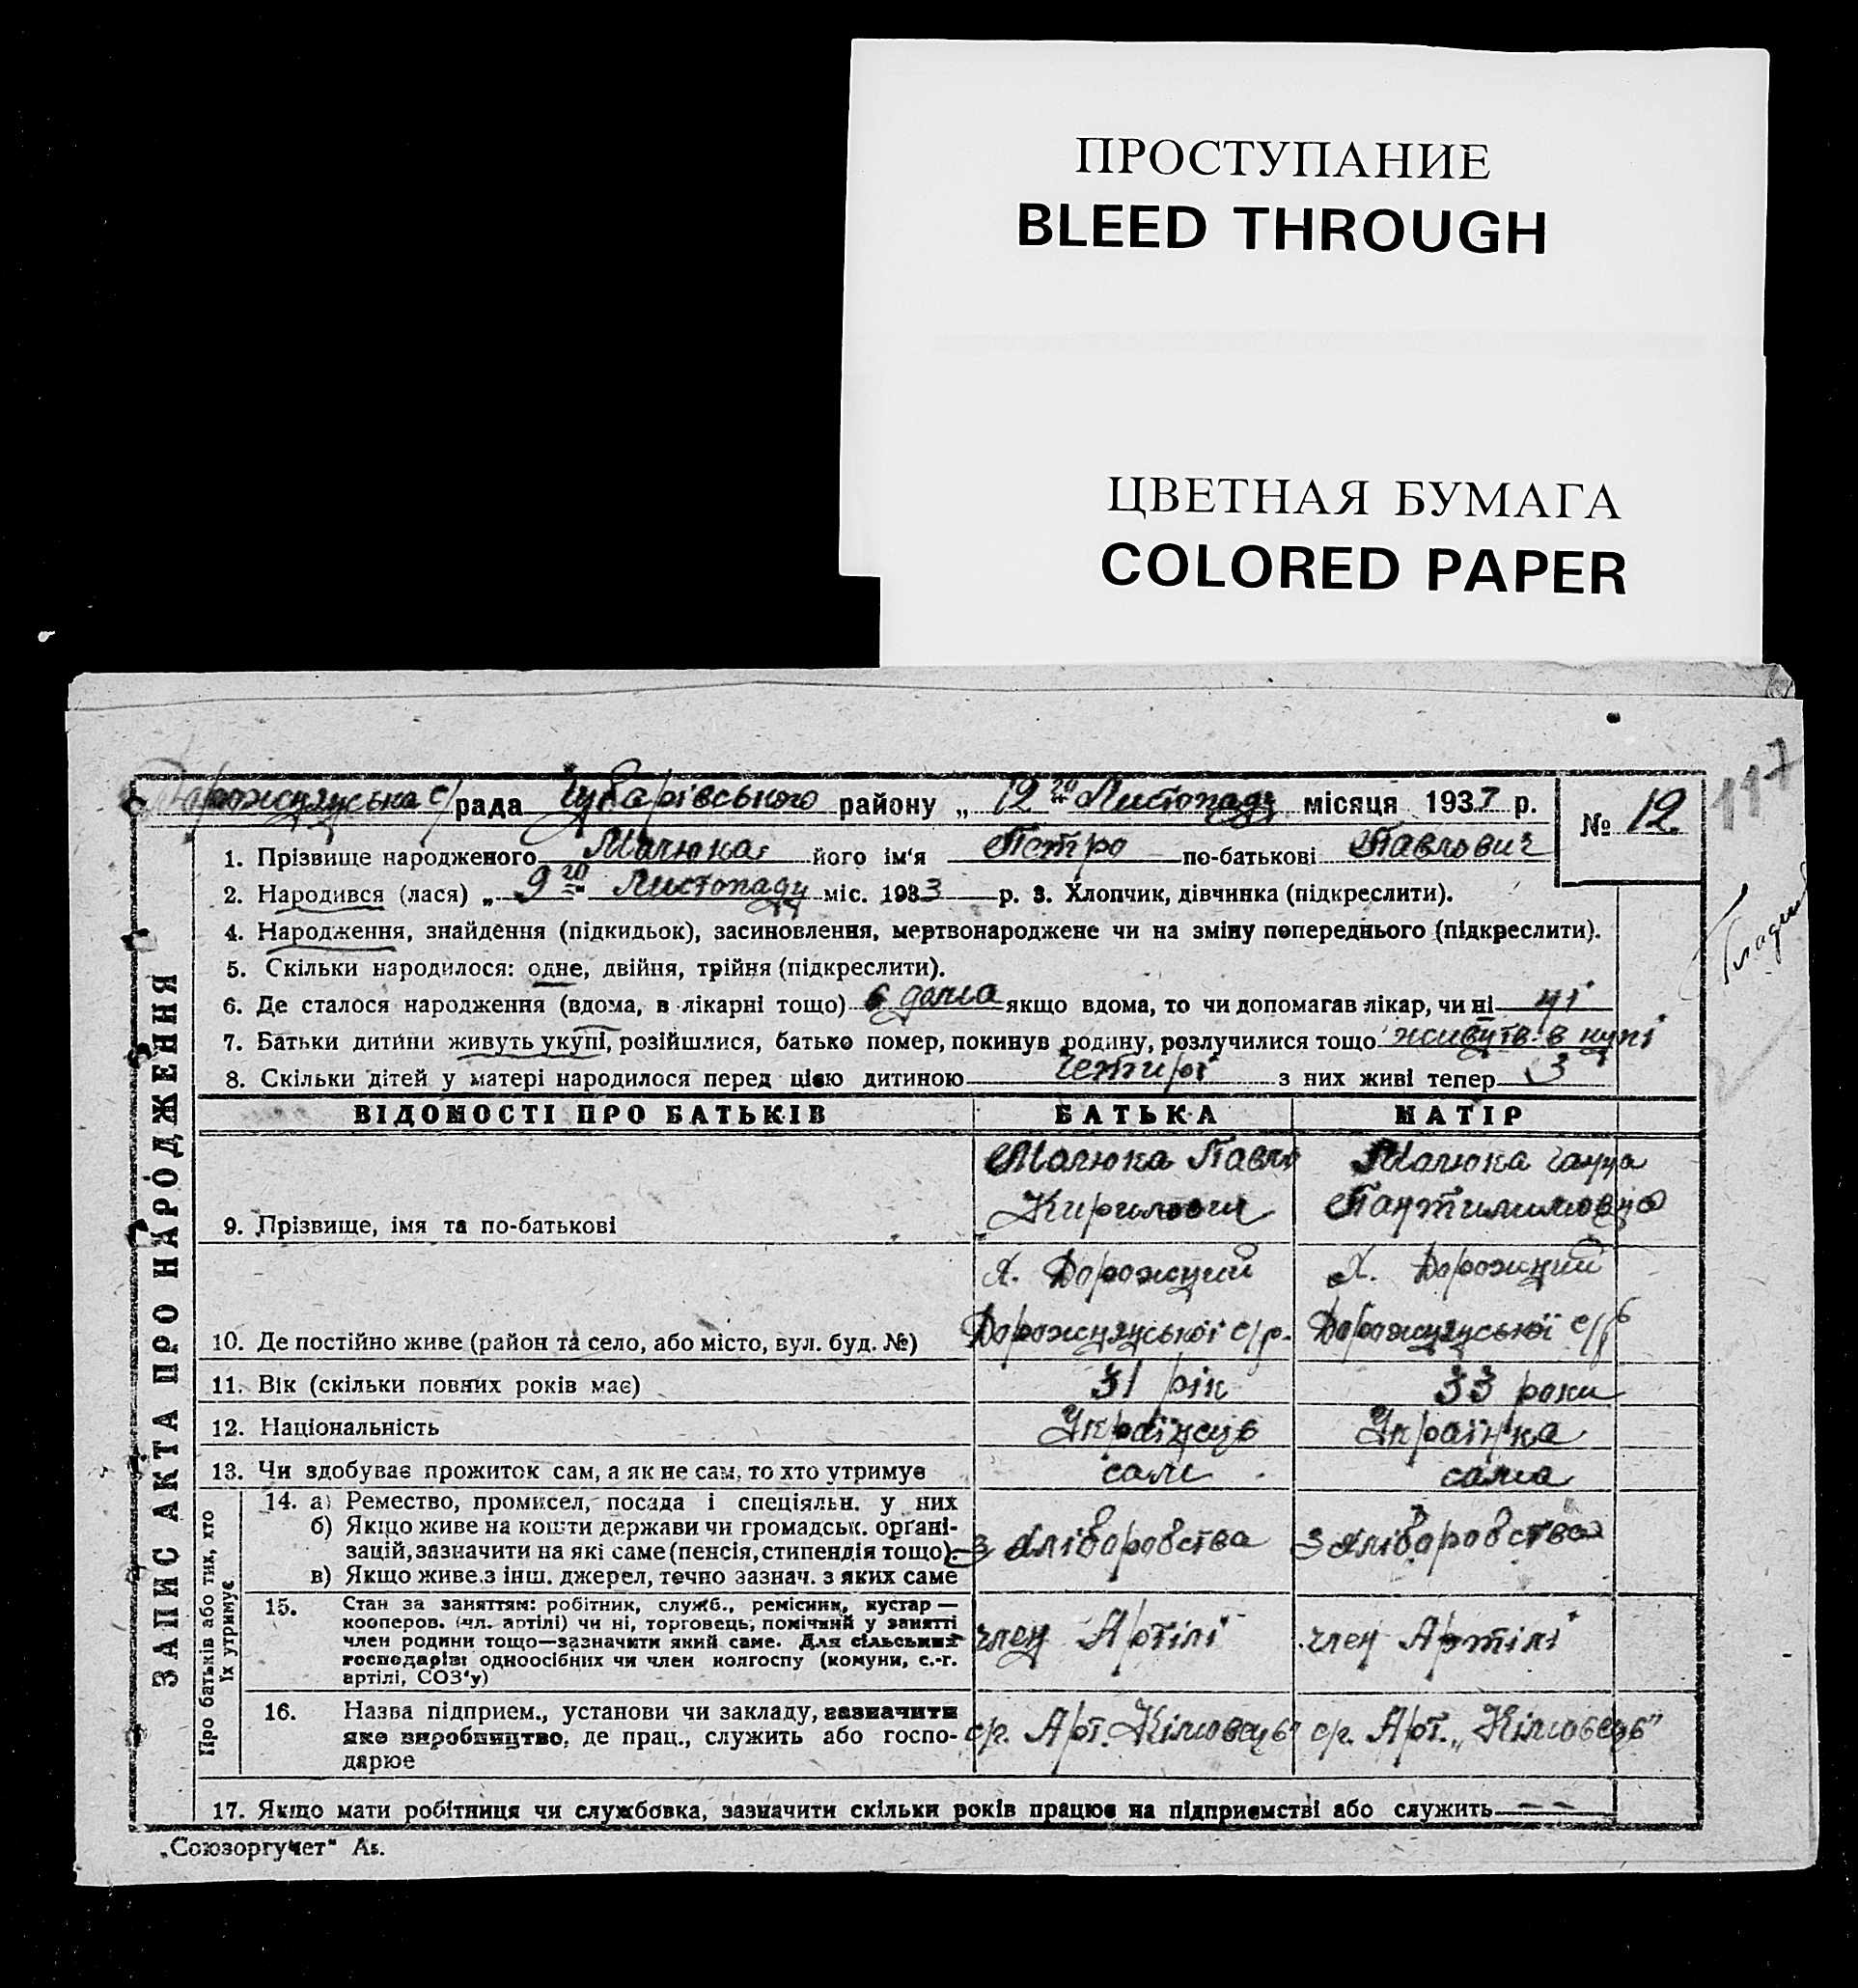 ПРОСТУПАНИЕ
BLEED THROUGH
ЦВЕТНАЯ БУМАГА
COLORED PAPER
117
рада Чубарівського району „12го" Листопаду місяця 1937 р. № 12
1. Прізвище народженого Малюка його ім'я Петро по-батькові Павлович
2. Народився (лася) „9го" Листопаду міс. 1933 р. 3. Хлопчик, дівчинка (підкреслити).
4. Народження, знайдення (підкидьок), засиновлення, мертвонароджене чи на зміну попереднього (підкреслити).
5. Скільки народилося: одне, двійня, трійня (підкреслити).
6. Де сталося народження (вдома, в лікарні тощо) в дома якщо вдома, то чи допомагав лікар, чи ні ні
7. Батьки дитини живуть укупі, розійшлися, батько помер, покинув родину, розлучилися тощо живуть в купі
8. Скільки дітей у матері народилося перед цією дитиною четирі з них живі тепер 3
ВІДОМОСТІ ПРО БАТЬКІВ БАТЬКА МАТІР
Малюка Павло Малюка Ганна
9. Прізвище, імя та по-батькові Кирилович Пантилимовна
х. Дорожний х. Дорожний
10. Де постійно живе (район та село, або місто, вул. буд. №) Дорожнянської с/р. Дорожнянської с/р
11. Вік (скільки повних років має) 31 рік 33 роки
12. Національність Українець Українка
13. Чи здобуває прожиток сам, а як не сам, то хто утримує сам сама
14. а) Ремество, промисел, посада і спеціяльн. у них
б) Якщо живе на кошти держави чи громадськ. органі-
зацій, зазначити на які саме (пенсія, стипендія тощо). з хліборобства з хліборобства
в) Якщо живе з інш. джерел, течно зазнач. з яких саме
15. Стан за заняттям: робітник, служб., ремісник, кустар —
кооперов. (чл. артілі) чи ні, торговець, помічний у занятті
член родини тощо—зазначити який саме. Для сільських член Артілі член Артілі
господарів: одноосібних чи член колгоспу (комуни, с.-г.
артілі, СОЗ'у)
16. Назва підприєм., установи чи закладу, зазначити
яке виробництво, де прац., служить або госпо- с/г. Арт. с/г. Арт.
дарює
17. Якщо мати робітниця чи службовка, зазначити скільки років працює на підприємстві або служить — —
„Союзоргучет"
ЗАПИС АКТА ПРО НАРОДЖЕННЯ
Про батьків або тих, хто
їх утримує